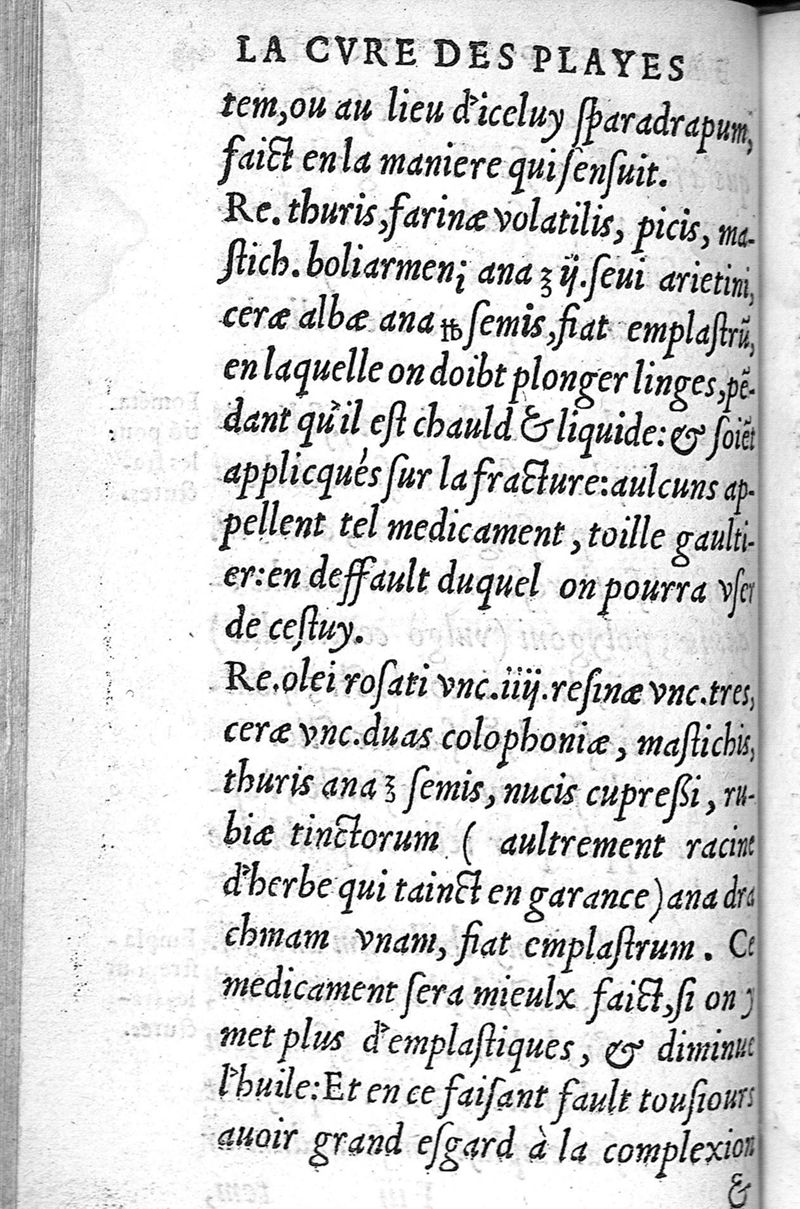 LA CVRE DES PLAYES
tem, ou au lieu d'iceluy ſparadrapum,
faict en la maniere qui ſenſuit.
Re. thuris, farinæ volatilis, picis, ma-
ſtich. boliarmeni; ana ʒ ij. ſeui arietini,
ceræ albæ ana ℔ ſemis, fiat emplaſtrũ,
en laquelle on doibt plonger linges, pẽ-
dant qu'il eſt chauld & liquide: & ſoiẽt
applicqués ſur la fracture: aulcuns ap-
pellent tel medicament, toille gaulti-
er: en deffault duquel on pourra vſer
de ceſtuy.
Re. olei roſati vnc. iiij. reſinæ vnc. tres,
ceræ vnc. duas colophoniæ, maſtichis,
thuris ana ʒ ſemis, nucis cupreſſi, ru-
biæ tinctorum ( aultrement racine
d'herbe qui tainct en garance) ana dra
chmam vnam, fiat emplaſtrum. Ce
medicament ſera mieulx faict, ſi on y
met plus d'emplaſtiques, & diminue
l'huile: Et en ce faiſant fault touſiours
auoir grand eſgard à la complexion
&